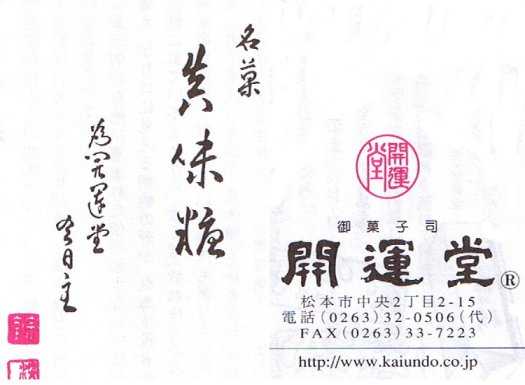 名菓
真味糖
為開運堂
開運堂
御菓子司
開運堂®
松本市中央2丁目2-15
電話(0263)32-0506(代)
FAX(0263)33-7223
http://www.kaiundo.co.jp